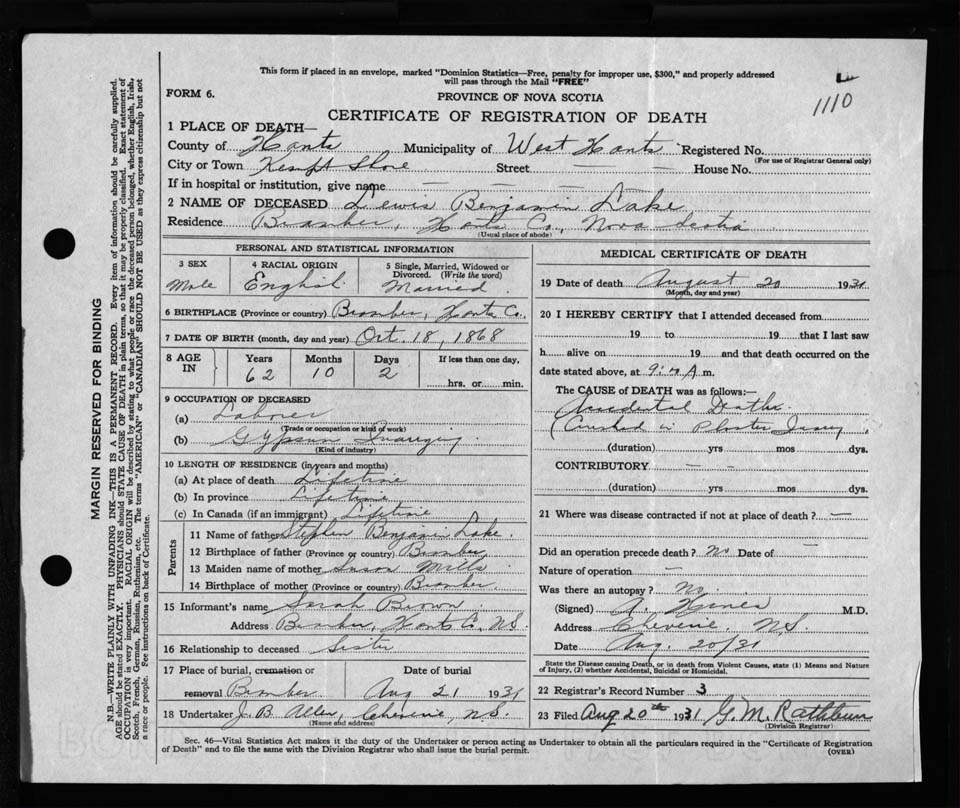 This form if placed in an envelope, marked "Dominion Statistics—Free, penalty for improper use, $300," and properly addressed
will pass through the Mail "FREE"
1110
FORM 6.
PROVINCE OF NOVA SCOTIA
CERTIFICATE OF REGISTRATION OF DEATH
1 PLACE OF DEATH—
County of Hants Municipality of West Hants Registered No.
(For use of Registrar General only)
City or Town Kempt Shore Street — House No.
If in hospital or institution, give name — — — —
2 NAME OF DECEASED Lewis Benjamin Lake
Residence Bramber, Hants Co., Nova Scotia
(Usual place of abode)
PERSONAL AND STATISTICAL INFORMATION
3 SEX 4 RACIAL ORIGIN 5 Single, Married, Widowed or
Divorced. (Write the word)
Male English Married
6 BIRTHPLACE (Province or country) Bramber, Hants Co.,
7 DATE OF BIRTH (month, day and year) Oct. 18, 1868
8 AGE IN Years Months Days If less than one day,
62 10 2 hrs. or min.
9 OCCUPATION OF DECEASED
(a) Laborer
(Trade or occupation or kind of work)
(b) Gypsum
(Kind of industry)
10 LENGTH OF RESIDENCE (in years and months)
(a) At place of death Lifetime
(b) In province Lifetime
(c) In Canada (if an immigrant) Lifetime
Parents
11 Name of father Stephen Benjamin Lake
12 Birthplace of father (Province or country) Bramber
13 Maiden name of mother Susan Mills
14 Birthplace of mother (Province or country) Bramber
15 Informant's name Sarah Brown
Address Bramber, Hants Co., N.S.
16 Relationship to deceased Sister
17 Place of burial, cremation or Date of burial
removal Bramber Aug 21 1931
18 Undertaker J. B. Allen, Cheverie, N.S.
(Name and address)
MEDICAL CERTIFICATE OF DEATH
19 Date of death August 20 1931
(Month, day and year)
20 I HEREBY CERTIFY that I attended deceased from
19 to 19 that I last saw
h alive on 19 and that death occurred on the
date stated above, at A m.
The CAUSE of DEATH was as follows:—
Accidental Death
(Crushed in Plaster
(duration) yrs mos dys.
CONTRIBUTORY — —
(duration) yrs mos dys.
21 Where was disease contracted if not at place of death? —
Did an operation precede death? No Date of —
Nature of operation —
Was there an autopsy? No
(Signed) A. Hines M.D.
Address Cheverie N.S.
Date Aug. 20/31
State the Disease causing Death, or in death from Violent Causes, state (1) Means and Nature
of Injury, (2) whether Accidental, Suicidal or Homicidal.
22 Registrar's Record Number 3
23 Filed Aug 20th 1931 G. M. Rathbun
(Division Registrar)
Sec. 46—Vital Statistics Act makes it the duty of the Undertaker or person acting as Undertaker to obtain all the particulars required in the "Certificate of Registration
of Death" and to file the same with the Division Registrar who shall issue the burial permit.
(OVER)
MARGIN RESERVED FOR BINDING
N.B.—WRITE PLAINLY WITH UNFADING INK—THIS IS A PERMANENT RECORD. Every item of information should be carefully supplied.
AGE should be stated EXACTLY. PHYSICIANS should STATE CAUSE OF DEATH in plain terms, so that it may be properly classified. Exact statement of
OCCUPATION is very important. RACIAL ORIGIN will be described by stating to what people or race the deceased person belonged, whether English, Irish,
Scotch, French, German, Russian, Ruthenian, etc. The terms "AMERICAN" or "CANADIAN" SHOULD NOT BE USED as they express citizenship but not
a race or people. See instructions on back of Certificate.